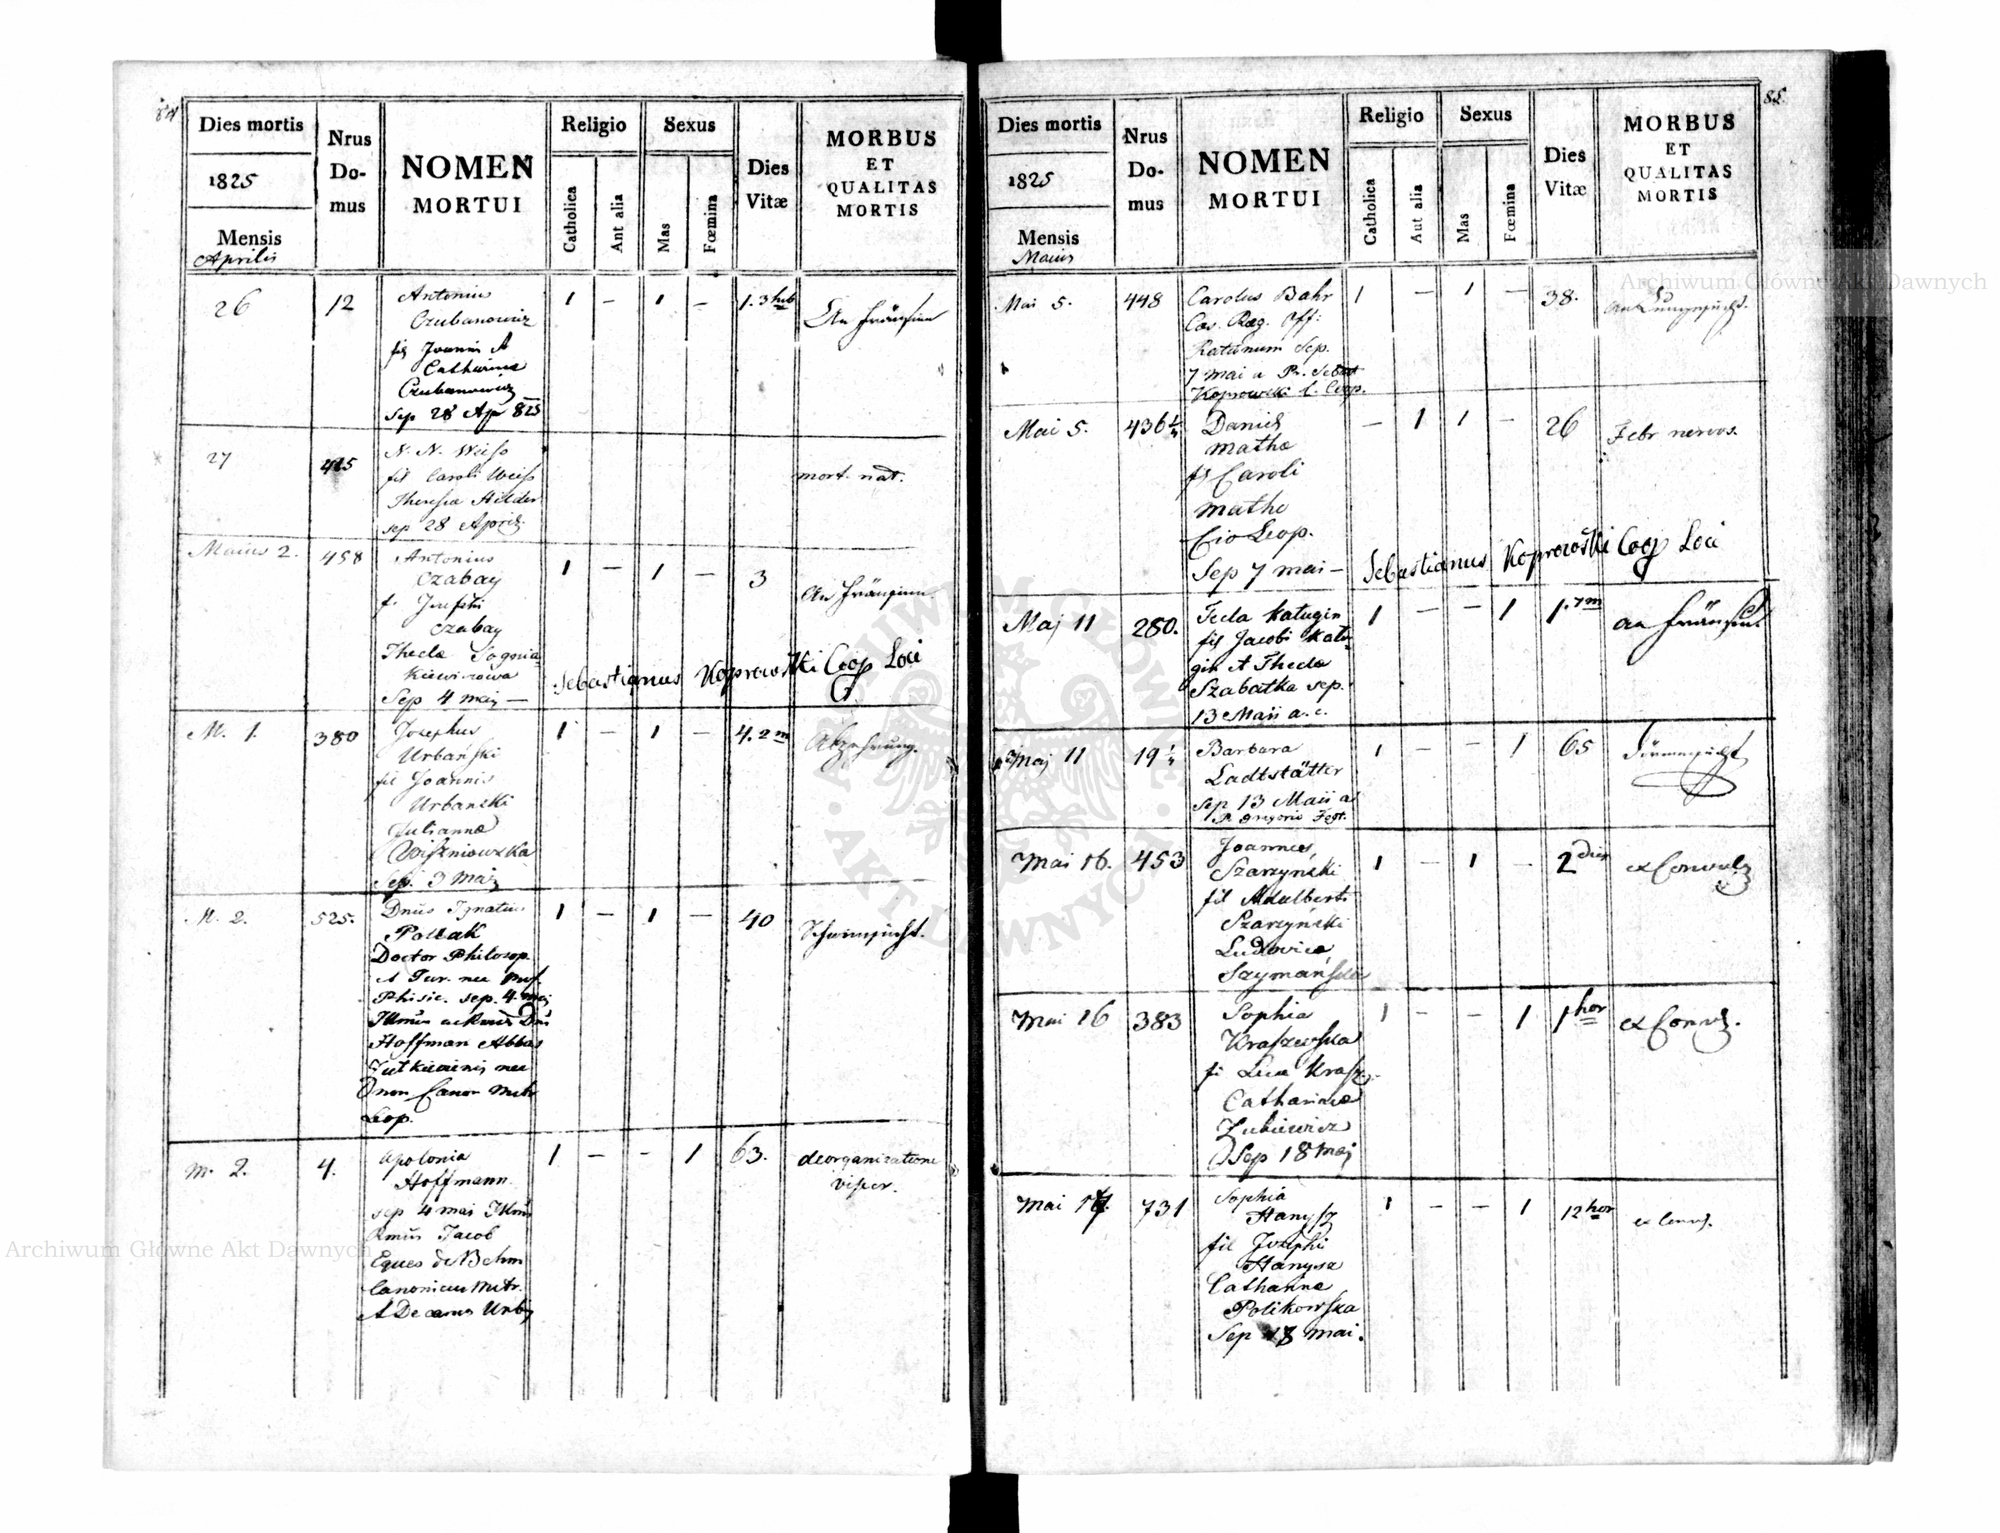 84
Dies mortis
1825
Mensis
Aprilis
Nrus
Do-
mus
NOMEN
MORTUI
Religio
Catholica
Aut alia
Sexus
Mas
Fœmina
Dies
Vitæ
MORBUS
ET
QUALITAS
MORTIS
26 12 Antonius 1 — 1 — 1. 3 heb An Fräusen
Czubanowicz
fil Joannis et
Catharina
Czubanowicz
Sep 28 Apr 825
27 415 N. N. Weiss mort. nat.
fil Caroli Weiss
Theresia
sep 28 April.
Maius 2. 458 Antonius 1 — 1 — 3 An Fräusen
Czabay
f. Josephi
Czabay
Thecla
Sep 4 maj —
Sebastianus Koprowski Coop Loci
M. 1. 380 Josephus 1 — 1 — 4. 2 m Abzehrung.
Urbański
fil Joannis
Urbanski
Julianna
Wiszniowska
Sep. 3 Maj
M. 2. 525. Dnus Ignatius 1 — 1 — 40
Pollak
Doctor Philosop.
et Jur. nec
Phisic. sep. 4. maj
Hoffman Abbas
non Canon Metr
Leop.
M. 2. 4. Apolonia 1 — — 1 63. deorganizatione
Hoffmann viscer.
sep 4 mai Illmus
Rmus Jacob
Eques de
Canonicus Metr.
et Decanus Urbis
85.
Dies mortis
1825
Mensis
Maius
Nrus
Do-
mus
NOMEN
MORTUI
Religio
Catholica
Aut alia
Sexus
Mas
Fœmina
Dies
Vitæ
MORBUS
ET
QUALITAS
MORTIS
Mai 5. 448 Carolus Bahr 1 — 1 — 38. An Lungensucht.
Cæs. Reg. Off:
Rationum Sep.
7 Mai a Pr. Sebast
Koprowski l. Coop.
Mai 5. 436 1/4 Daniel — 1 1 — 26 Febr nervos.
Mathe
fil Caroli
Mathe
Cio Leop.
Sep 7 mai —
Sebastianus Koprowski Coop Loci
Maj 11 280. Tecla Katugin 1 — — 1 1. 7 m an Fräusen
fil Jacobi Katu-
gin et Thecla
Szabatka sep.
13 Maii a. c.
Maj 11 19 1/4 Barbara 1 — — 1 65
Ladtstätter
sep 13 Maii a
P. Gregorio
Mai 16. 453 Joannes 1 — 1 — 2 dies ex Convuls
Szarzyński
fil Adalberti
Szarzyński
Ludovica
Szymańska
Mai 16 383 Sophia 1 — — 1 1 hor ex Convs.
Kraszewska
fi Luca Krasz.
Catharinæ
Sep 18 Maj
Mai 17. 731 Sophia 1 — — 1 12 hor ex Convs.
Hanysz
fil Josephi
Hanysz
Catharina
Polikowska
Sep 18 mai.
Archiwum Główne Akt Dawnych
Archiwum Główne Akt Dawnych
ARCHIWUM GŁÓWNE · AKT DAWNYCH ·